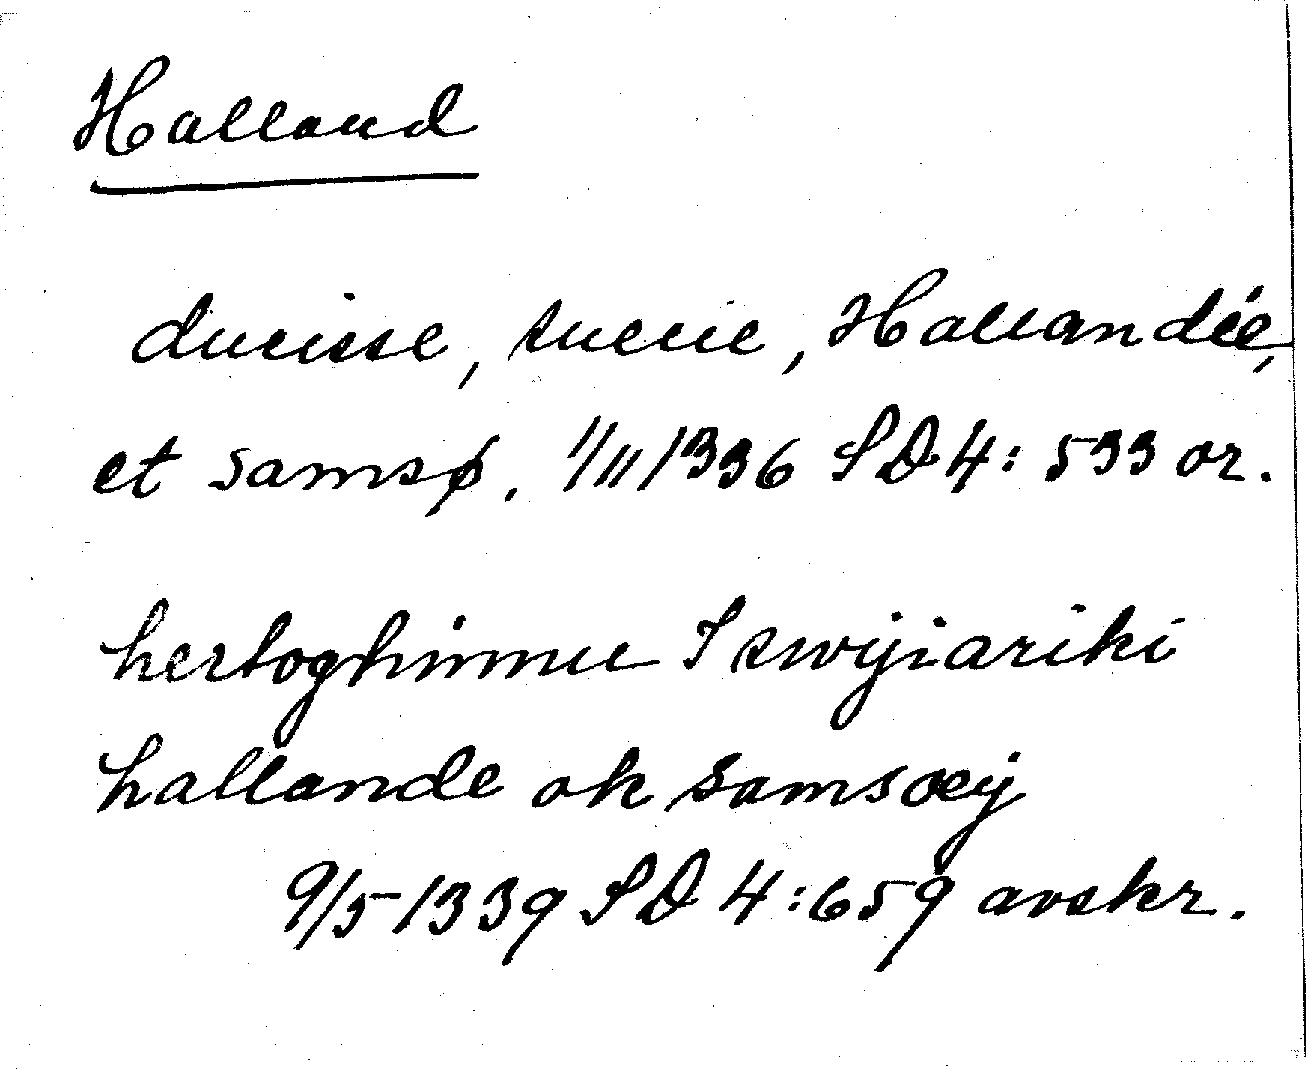 Halland
ducisse, suecie, Hallandie,
et samsø. 1/11 1336 SD 4: 533 or.
hertoghinnu I swijiariki
hallande ok samsoey
9/5 1339 SD 4:659 avskr.